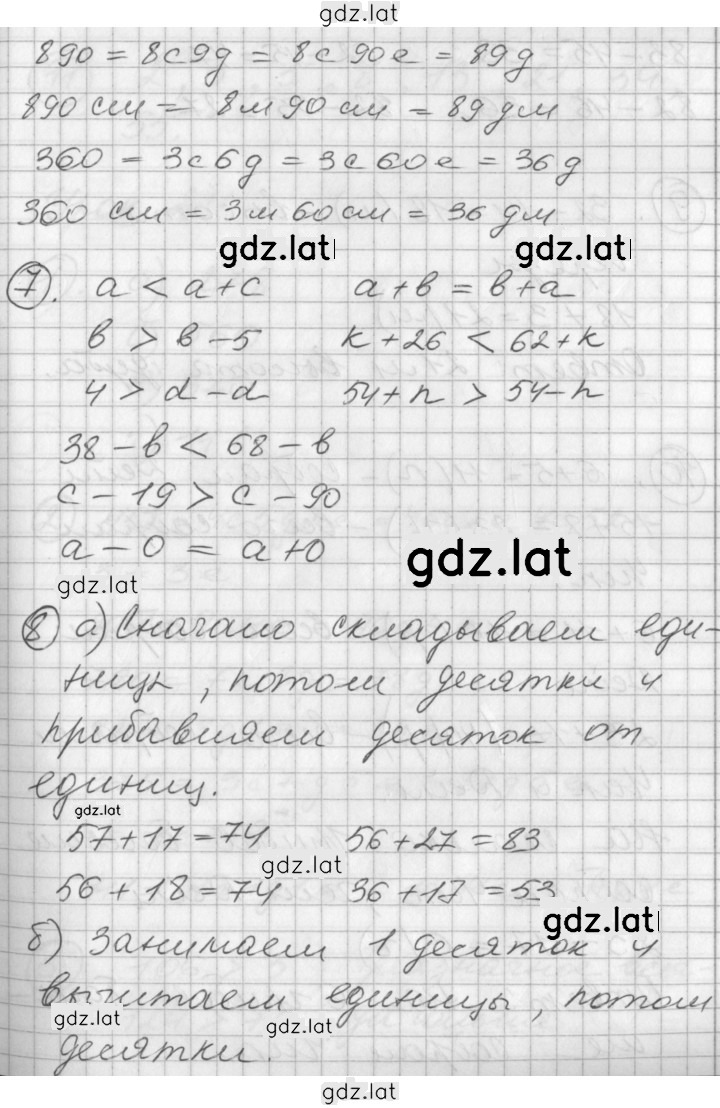 gdz.lat
890 = 8с9д = 8с 90е = 89д
890 см = 8м 90 см = 89 дм
360 = 3с6д = 3с 60е = 36д
360 см = 3м 60 см = 36 дм
gdz.lat gdz.lat
7. a < a+c a+в = в+a
в > в-5 к+26 < 62+к
4 > d-d 54+n > 54-n
38-в < 68-в
c-19 > c-90
a-0 = a+0
gdz.lat gdz.lat
8 а) Сначало складываем еди-
ницы, потом десятки и
прибавляем десяток от
единиц.
gdz.lat
57+17=74 56+27=83
gdz.lat
56+18=74 36+17=53
gdz.lat
б) Занимаем 1 десяток и
вычитаем единицы, потом
gdz.lat gdz.lat
десятки.
gdz.lat